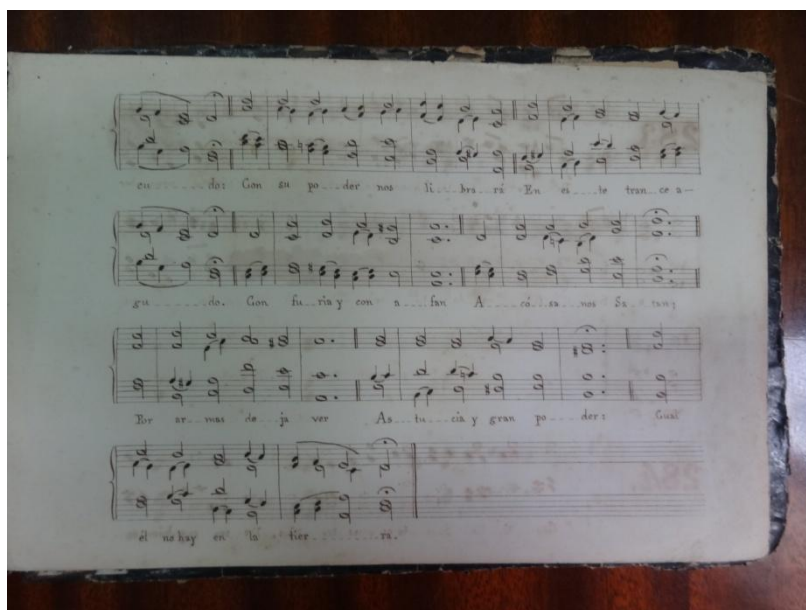 cu........do: Con su po...der nos li...bra...rá En es...te tran...ce a—
gu........do. Con fu...ria y con a...fan A...có...sa...nos Sa...tan;
Por ar...mas de...ja ver As...tu...cia y gran po...der: Cual
él no hay en la tier...........ra.